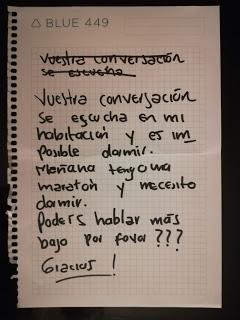 △ BLUE 449
Vuestra conversación
se escucha
Vuestra conversación
se escucha en mi
habitación y es im
posible dormir.
Mañana tengo una
maratón y necesito
dormir.
Poders hablar más
bajo por favor ???
Gracias !